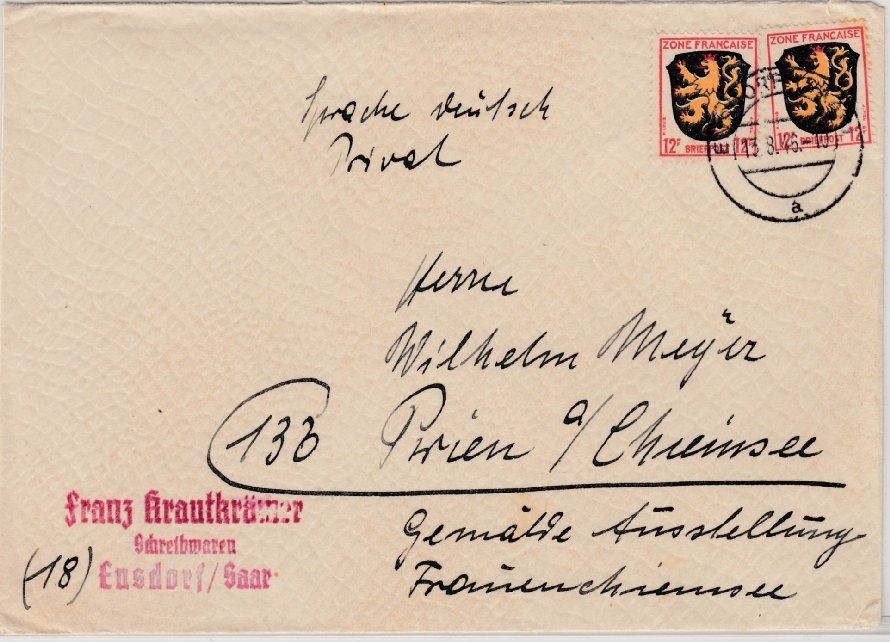 Sprache deutsch
Privat
ZONE FRANÇAISE
12F BRIEFPOST 12F
ZONE FRANÇAISE
12F BRIEFPOST 12
13.8.46.-10
a
Herrn
Wilhelm Meyer
13b Prien a/Chiemsee
Gemälde Ausstellung
Frauenchiemsee
Franz Krautkrämer
Schreibwaren
(18) Ensdorf/Saar